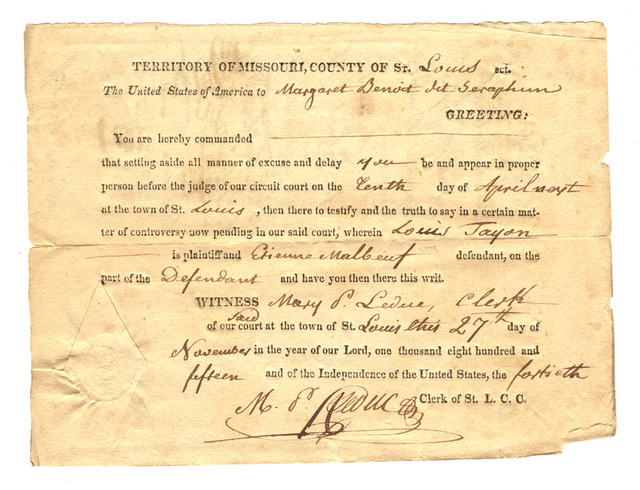 TERRITORY OF MISSOURI, COUNTY OF ST. Louis sct.
The United States of America to Margaret Benoit dit Seraphim
GREETING:
You are hereby commanded
that setting aside all manner of excuse and delay you be and appear in proper
person before the judge of our circuit court on the Tenth day of April next
at the town of St. Louis , then there to testify and the truth to say in a certain mat-
ter of controversy now pending in our said court, wherein Louis Tayon
is plaintiff and Etienne Malbeuf defendant, on the
part of the Defendant and have you then there this writ.
WITNESS Mary P. Leduc, Clerk
of our said court at the town of St. Louis this 27th day of
November in the year of our Lord, one thousand eight hundred and
fifteen and of the Independence of the United States, the fortieth
M. P. Leduc Clerk of St. L. C. C.